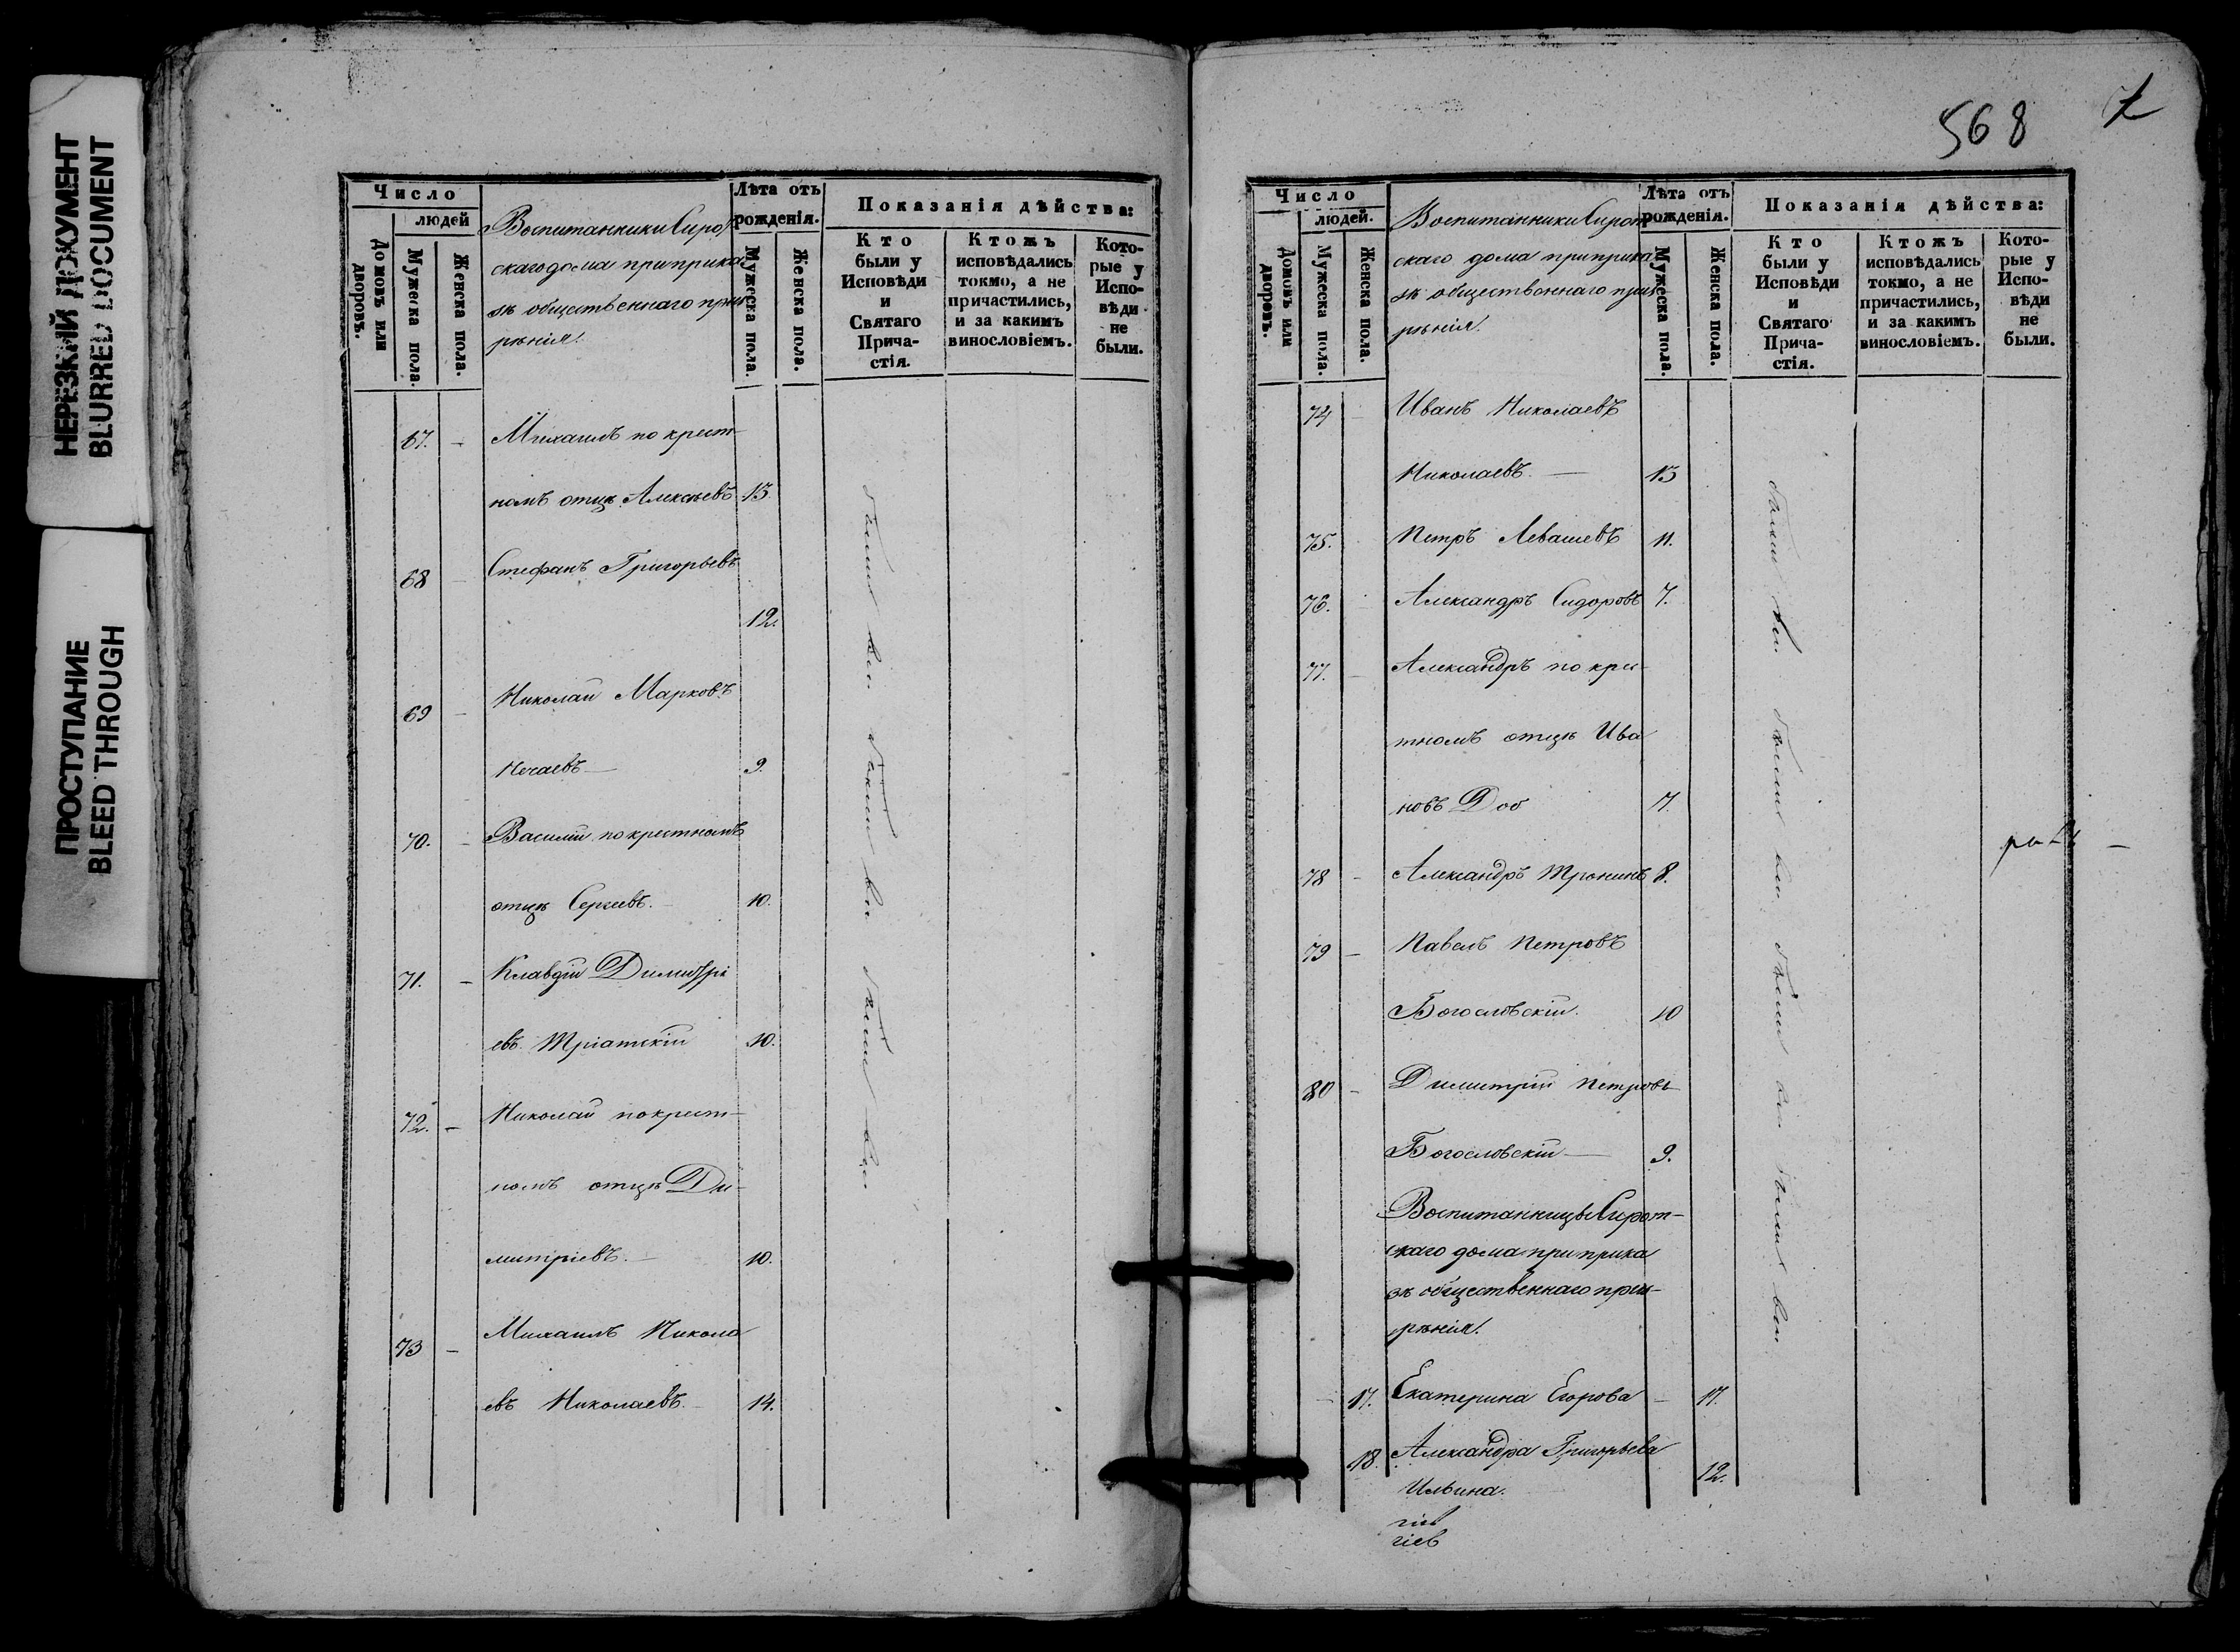 НЕРЕЗКИЙ ДОКУМЕНТ
BLURRED DOCUMENT
ПРОСТУПАНИЕ
BLEED THROUGH
Число
людей
Домовъ или дворовъ.
Мужеска пола.
Женска пола.
Воспитанники Сирот
скаго дома при прика
зѣ общественнаго при
рѣнія.
Лѣта отъ
рожденія.
Мужеска пола.
Женска пола.
Показанія дѣйства:
Кто
были у
Исповѣди
и
Святаго
Прича-
стія.
Ктожъ
исповѣдались
токмо, а не
причастились,
и за какимъ
винословіемъ.
Кото-
рые у
Испо-
вѣди
не
были.
67. - Михаилъ по крест-
номъ отцѣ Алексѣевъ 13.
68 - Стефанъ Григорьевъ
12.
69 - Николай Марковъ
Нечаевъ — 9.
70. - Василій по крестномъ
отцѣ Сергѣевъ. - 10.
71. - Клавдій Димитрі
евъ 10.
72. - Николай по крест-
номъ отцѣ Ди-
митріевъ. — 10.
73 - Михаилъ Никола
евъ Николаевъ. - 14.
были вси были вси были вси
568
Число
людей.
Домовъ или дворовъ.
Мужеска пола.
Женска пола.
Воспитанники Сирот
скаго дома при прика
зѣ общественнаго при
рѣнія.
Лѣта отъ
рожденія.
Мужеска пола.
Женска пола.
Показанія дѣйства:
Кто
были у
Исповѣди
и
Святаго
Прича-
стія.
Ктожъ
исповѣдались
токмо, а не
причастились,
и за какимъ
винословіемъ.
Кото-
рые у
Испо-
вѣди
не
были.
74 - Иванъ Николаевъ
Николаевъ. — 13
75. Петръ Левашевъ 11.
76. - Александръ Сидоровъ 7.
77. - Александръ по кре-
стномъ отцѣ Ива
новъ Доб 7.
78 - Александръ Тронинъ 8.
79 - Павелъ Петровъ
Богословскій. 10
80 - Димитрій Петровъ
Богословскій — 9.
Воспитанницы Сирот-
скаго дома при прика
зѣ общественнаго при-
рѣнія.
- 17. Екатерина Егорова - 17.
18. Александра Григорьева
Ильина. 12.
гіев
были вси были вси были вси были вси